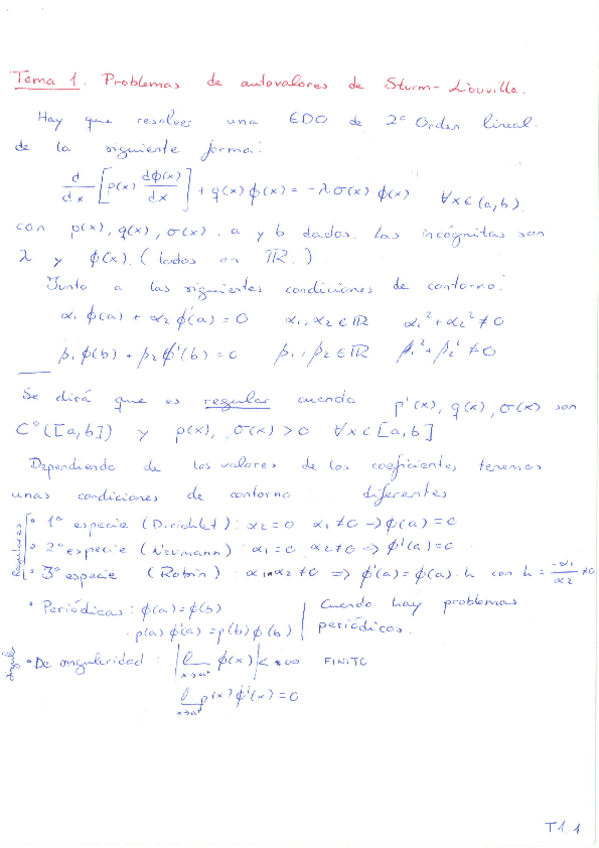 Tema 1. Problemas de autovalores de Sturm-Liouville.
Hay que resolver una EDO de 2º Orden lineal.
de la siguiente forma:
d/dx [p(x) dϕ(x)/dx] + q(x) ϕ(x) = -λ σ(x) ϕ(x) ∀x∈(a,b)
con p(x), q(x), σ(x), a y b dados. Las incógnitas son
λ y ϕ(x). (todos en ℝ.)
Junto a las siguientes condiciones de contorno:
α₁ ϕ(a) + α₂ ϕ'(a) = 0 α₁, α₂ ∈ ℝ α₁² + α₂² ≠ 0
β₁ ϕ(b) + β₂ ϕ'(b) = 0 β₁, β₂ ∈ ℝ β₁² + β₂² ≠ 0
Se dirá que es regular cuando p'(x), q(x), σ(x) son
C⁰([a,b]) y p(x), σ(x) > 0 ∀x∈[a,b]
Dependiendo de los valores de los coeficientes tenemos
unas condiciones de contorno diferentes
Regulares
• 1ª especie (Dirichlet): α₂=0 α₁≠0 → ϕ(a)=0
• 2ª especie (Neumann): α₁=0 α₂≠0 ⇒ ϕ'(a)=0
• 3ª especie (Robin): α₁α₂≠0 ⇒ ϕ'(a)=ϕ(a)·h con h = -α₁/α₂ ≠0
• Periódicas: ϕ(a)=ϕ(b) Cuando hay problemas
p(a)ϕ'(a)=p(b)ϕ'(b) periódicos.
• De singularidad: |lim x→a⁺ ϕ(x)| < +∞ FINITO
lim x→a⁺ p(x)ϕ'(x)=0
T1.1